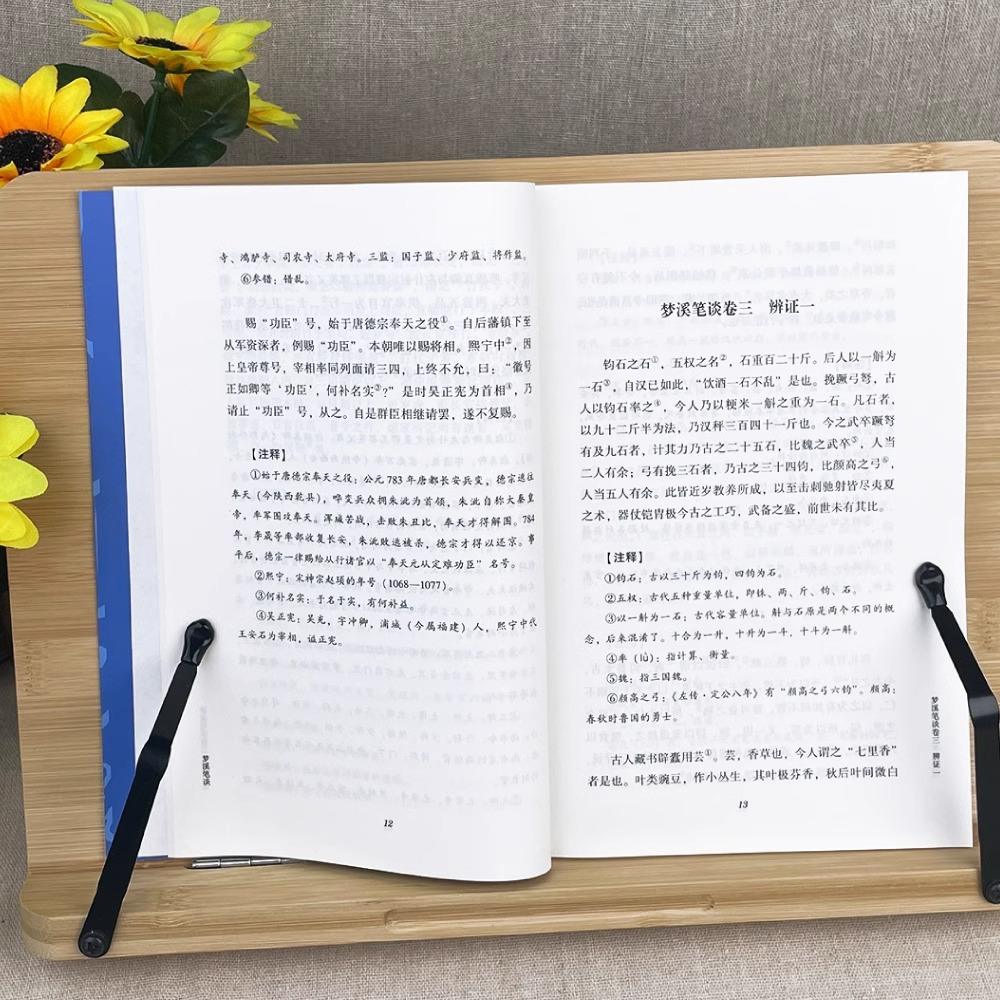 寺、鸿胪寺、司农寺、太府寺。三监：国子监、少府监、将作监。
⑥参错：错乱。
赐“功臣”号，始于唐德宗奉天之役①。自后藩镇下至
从军资深者，例赐“功臣”。本朝唯以赐将相。熙宁中②，因
上皇帝尊号，宰相率同列面请三四，上终不允，曰：“徽号
正如卿等‘功臣’，何补名实③？”是时吴正宪为首相④，乃
请止“功臣”号，从之。自是群臣相继请罢，遂不复赐。
【注释】
①始于唐德宗奉天之役：公元 783 年唐都长安兵变，德宗逃往
奉天（今陕西乾县），哗变兵众拥朱泚为首领，朱泚自称大秦皇
帝，率军围攻奉天。浑瑊苦战，击败朱丑比，奉天才得解围。784
年，李晟等率部收复长安，朱泚败逃被杀，德宗才得以还京。事
平后，德宗一律赐给从行诸官以“奉天元从定难功臣”名号。
②熙宁：宋神宗赵顼的年号（1068—1077）。
③何补名实：于名于实，有何补益。
④吴正宪：吴充，字冲卿，浦城（今属福建）人，熙宁中代
王安石为宰相，谥正宪。
梦溪笔谈
12
梦溪笔谈卷三 辨证一
钧石之石①，五权之名②，石重百二十斤。后人以一斛为
一石③，自汉已如此，“饮酒一石不乱”是也。挽蹶弓弩，古
人以钧石率之④，今人乃以粳米一斛之重为一石。凡石者，
以九十二斤半为法，乃汉秤三百四十一斤也。今之武卒蹶弩
有及九石者，计其力乃古之二十五石，比魏之武卒⑤，人当
二人有余；弓有挽三石者，乃古之三十四钧，比颜高之弓⑥，
人当五人有余。此皆近岁教养所成，以至击刺驰射皆尽夷夏
之术，器仗铠胄极今古之工巧，武备之盛，前世未有其比。
【注释】
①钧石：古以三十斤为钧，四钧为石。
②五权：古代五种重量单位，即铢、两、斤、钧、石。
③以一斛为一石：古代容量单位。斛与石原是两个不同的概
念，后来混淆了。十合为一升，十升为一斗，十斗为一斛。
④率（lǜ）：指计算、衡量。
⑤魏：指三国魏。
⑥颜高之弓：《左传·定公八年》有“颜高之弓六钧”。颜高：
春秋时鲁国的勇士。
古人藏书辟蠹用芸①。芸，香草也，今人谓之“七里香”
者是也。叶类豌豆，作小丛生，其叶极芬香，秋后叶间微白
梦溪笔谈卷三 辨证一
13